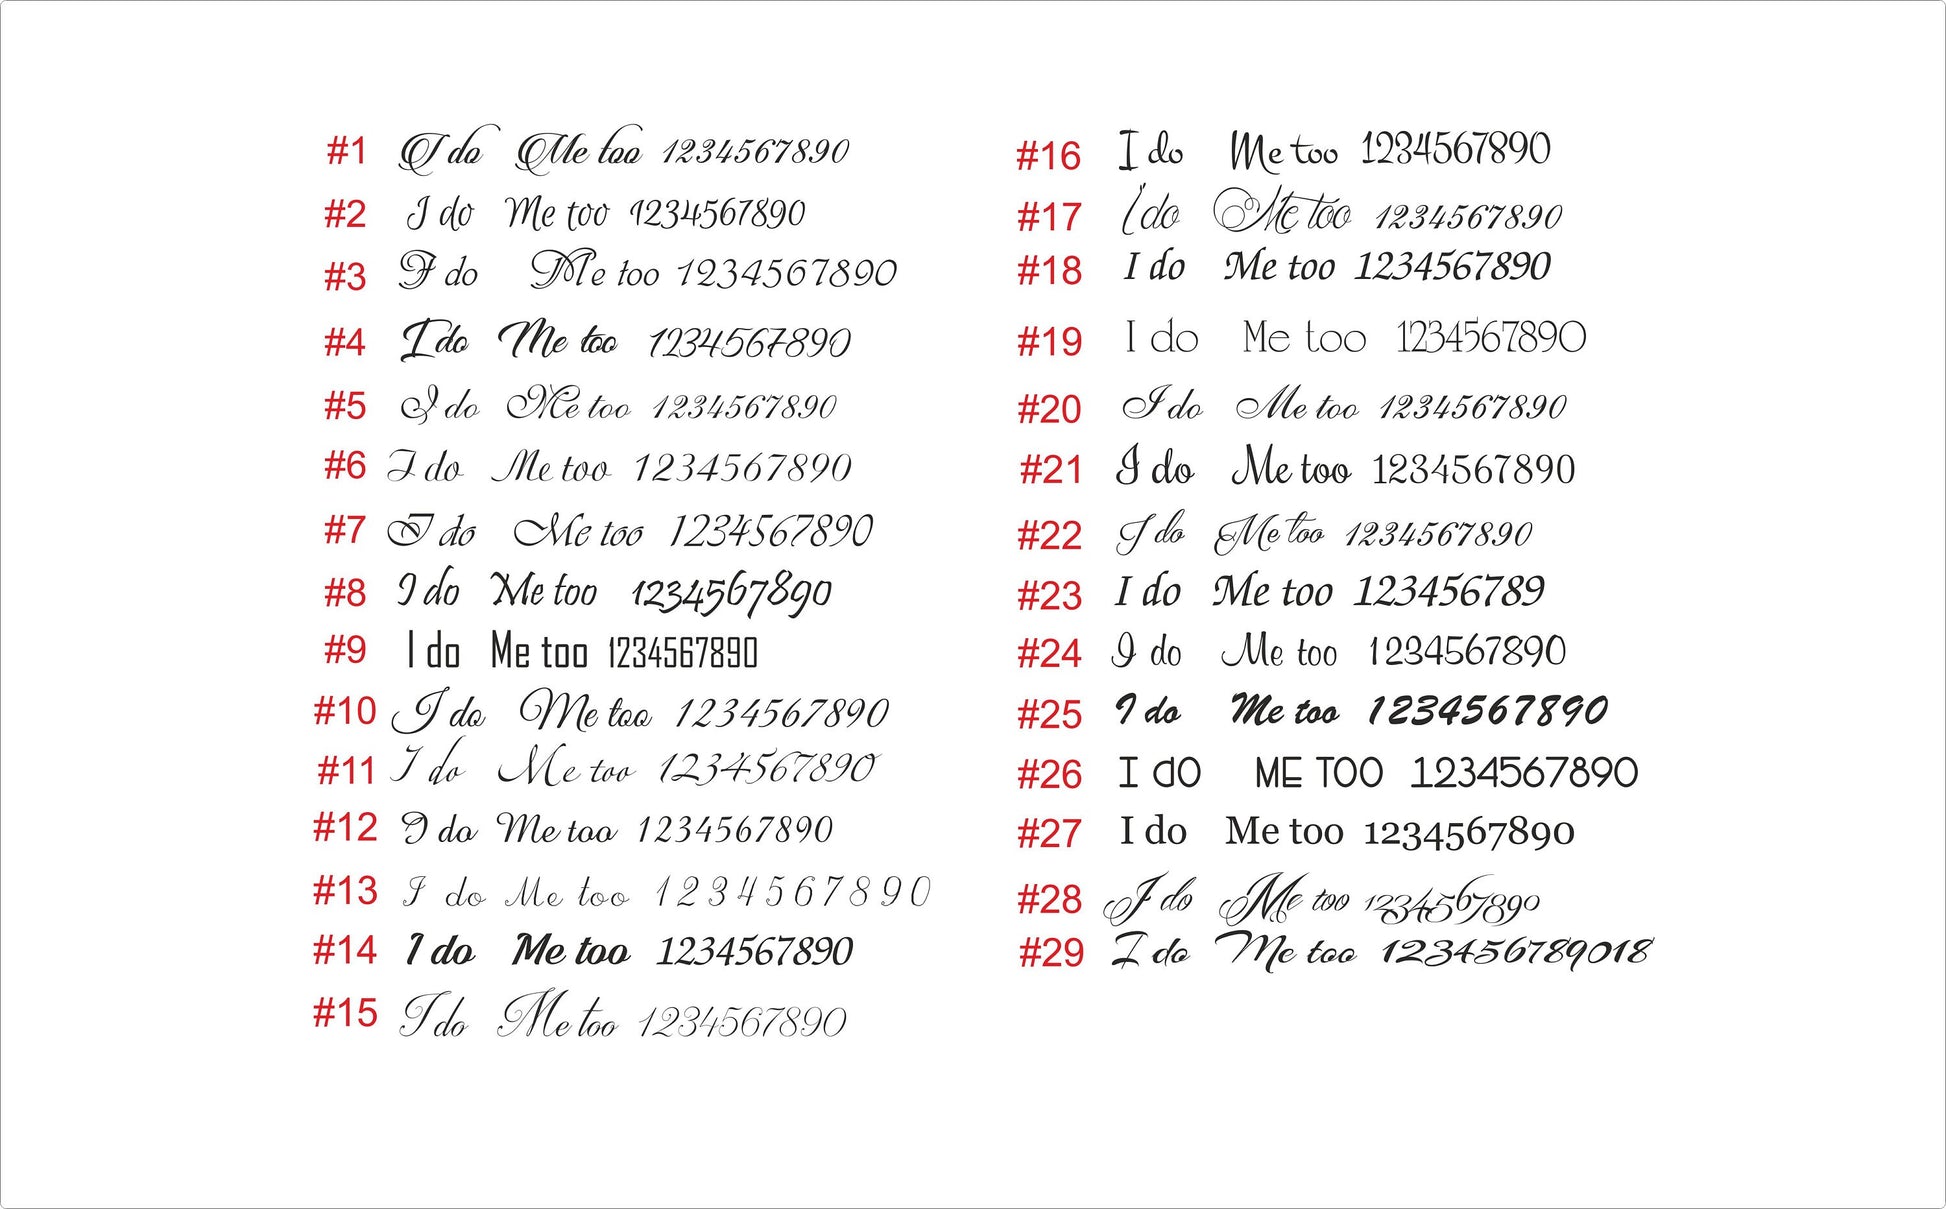 #1 I do Me too 1234567890
#2 I do Me too 1234567890
#3 I do Me too 1234567890
#4 I do Me too 1234567890
#5 I do Me too 1234567890
#6 I do Me too 1234567890
#7 I do Me too 1234567890
#8 I do Me too 1234567890
#9 I do Me too 1234567890
#10 I do Me too 1234567890
#11 I do Me too 1234567890
#12 I do Me too 1234567890
#13 I do Me too 1234567890
#14 I do Me too 1234567890
#15 I do Me too 1234567890
#16 I do Me too 1234567890
#17 I do Me too 1234567890
#18 I do Me too 1234567890
#19 I do Me too 1234567890
#20 I do Me too 1234567890
#21 I do Me too 1234567890
#22 I do Me too 1234567890
#23 I do Me too 123456789
#24 I do Me too 1234567890
#25 I do Me too 1234567890
#26 I dO ME TOO 1234567890
#27 I do Me too 1234567890
#28 I do Me too 1234567890
#29 I do Me too 123456789018